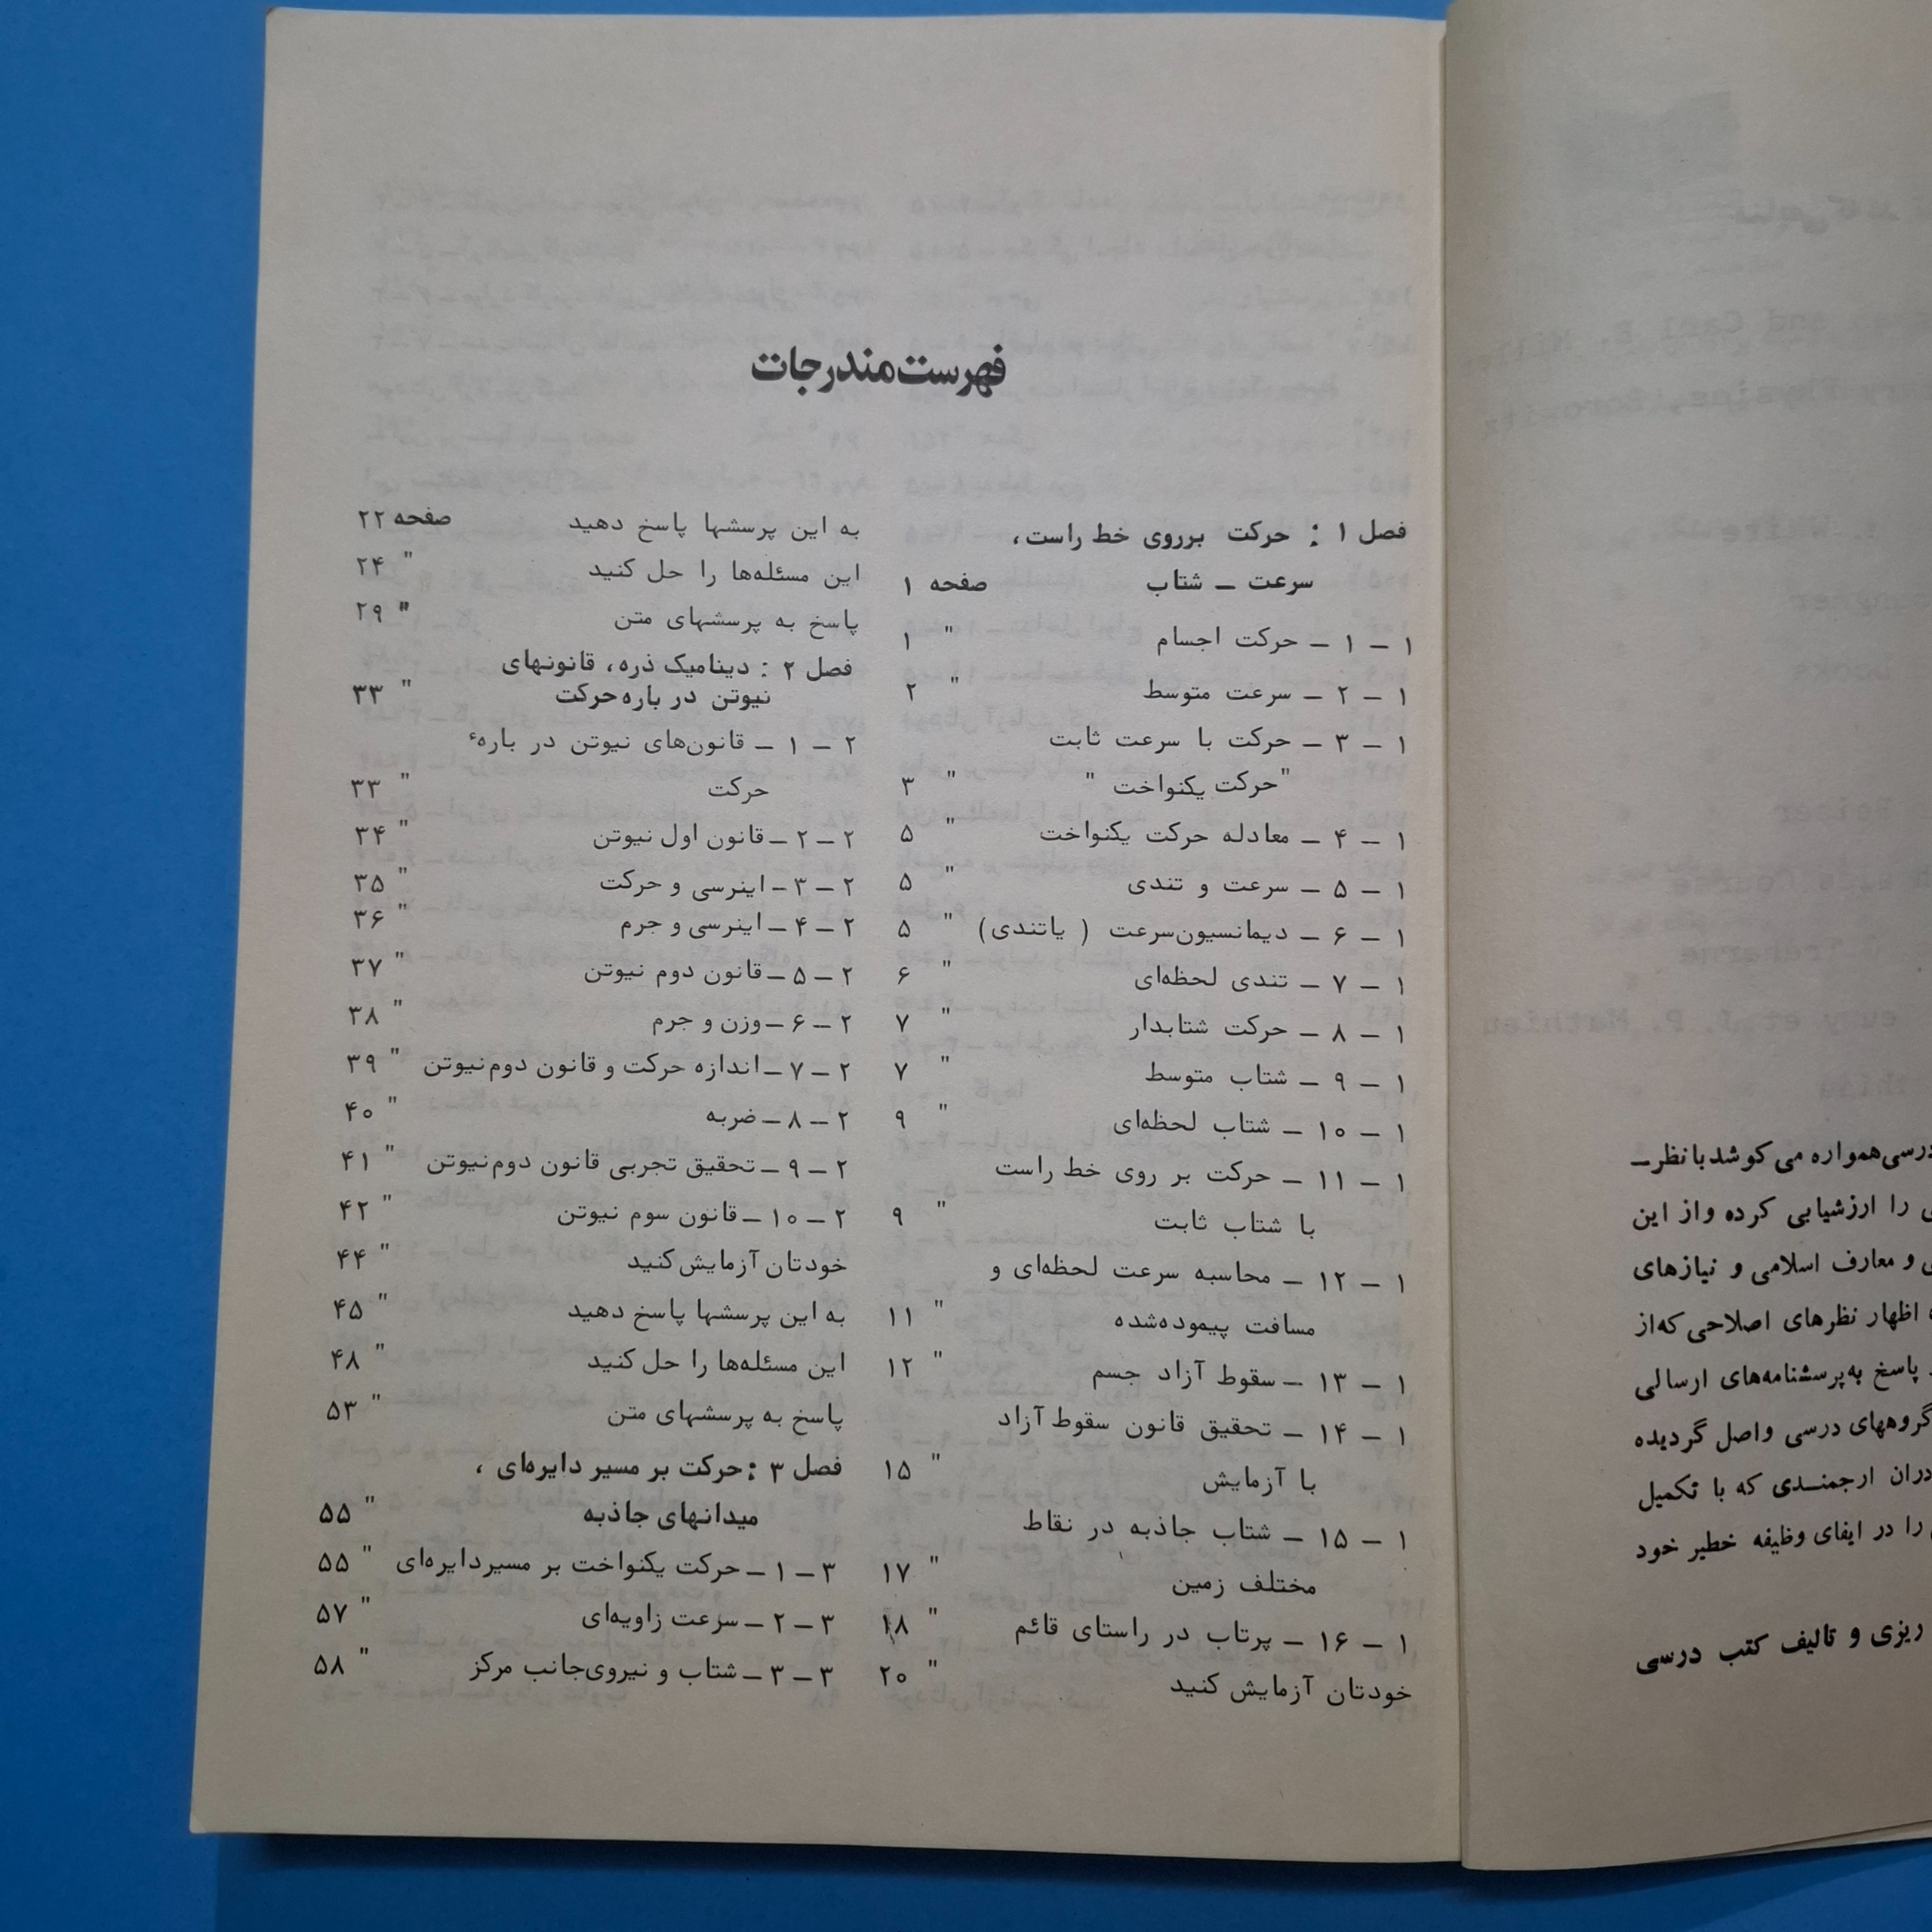 فهرست مندرجات
فصل ۱ : حرکت برروی خط راست،
سرعت – شتاب صفحه ۱
۱ – ۱ – حرکت اجسام " ۱
۱ – ۲ – سرعت متوسط " ۲
۱ – ۳ – حرکت با سرعت ثابت
"حرکت یکنواخت " " ۳
۱ – ۴ – معادله حرکت یکنواخت " ۵
۱ – ۵ – سرعت و تندی " ۵
۱ – ۶ – دیمانسیون‌سرعت ( یاتندی) " ۵
۱ – ۷ – تندی لحظه‌ای " ۶
۱ – ۸ – حرکت شتابدار " ۷
۱ – ۹ – شتاب متوسط " ۷
۱ – ۱۰ – شتاب لحظه‌ای " ۹
۱ – ۱۱ – حرکت بر روی خط راست
با شتاب ثابت " ۹
۱ – ۱۲ – محاسبه سرعت لحظه‌ای و
مسافت پیموده‌شده " ۱۱
۱ – ۱۳ – سقوط آزاد جسم " ۱۲
۱ – ۱۴ – تحقیق قانون سقوط آزاد
با آزمایش " ۱۵
۱ – ۱۵ – شتاب جاذبه در نقاط
مختلف زمین " ۱۷
۱ – ۱۶ – پرتاب در راستای قائم " ۱۸
خودتان آزمایش کنید " ۲۰
به این پرسشها پاسخ دهید صفحه ۲۲
این مسئله‌ها را حل کنید " ۲۴
پاسخ به پرسشهای متن " ۲۹
فصل ۲ : دینامیک ذره، قانونهای
نیوتن در باره حرکت " ۳۳
۲ – ۱ – قانون‌های نیوتن در بارهٔ
حرکت " ۳۳
۲ – ۲ – قانون اول نیوتن " ۳۴
۲ – ۳ – اینرسی و حرکت " ۳۵
۲ – ۴ – اینرسی و جرم " ۳۶
۲ – ۵ – قانون دوم نیوتن " ۳۷
۲ – ۶ – وزن و جرم " ۳۸
۲ – ۷ – اندازه حرکت و قانون دوم‌نیوتن " ۳۹
۲ – ۸ – ضربه " ۴۰
۲ – ۹ – تحقیق تجربی قانون دوم‌نیوتن " ۴۱
۲ – ۱۰ – قانون سوم نیوتن " ۴۲
خودتان آزمایش‌کنید " ۴۴
به این پرسشها پاسخ دهید " ۴۵
این مسئله‌ها را حل کنید " ۴۸
پاسخ به پرسشهای متن " ۵۳
فصل ۳ : حرکت بر مسیر دایره‌ای ،
میدانهای جاذبه " ۵۵
۳ – ۱ – حرکت یکنواخت بر مسیردایره‌ای " ۵۵
۳ – ۲ – سرعت زاویه‌ای " ۵۷
۳ – ۳ – شتاب و نیروی‌جانب مرکز " ۵۸
درسی‌همواره می‌کوشد بانظر–
را ارزشیابی کرده و از این
و معارف اسلامی و نیازهای
اظهار نظرهای اصلاحی که‌از
پاسخ به‌پرسشنامه‌های ارسالی
گروههای درسی واصل گردیده
ارجمندی که با تکمیل
را در ایفای وظیفه خطیر خود
ریزی و تالیف کتب درسی